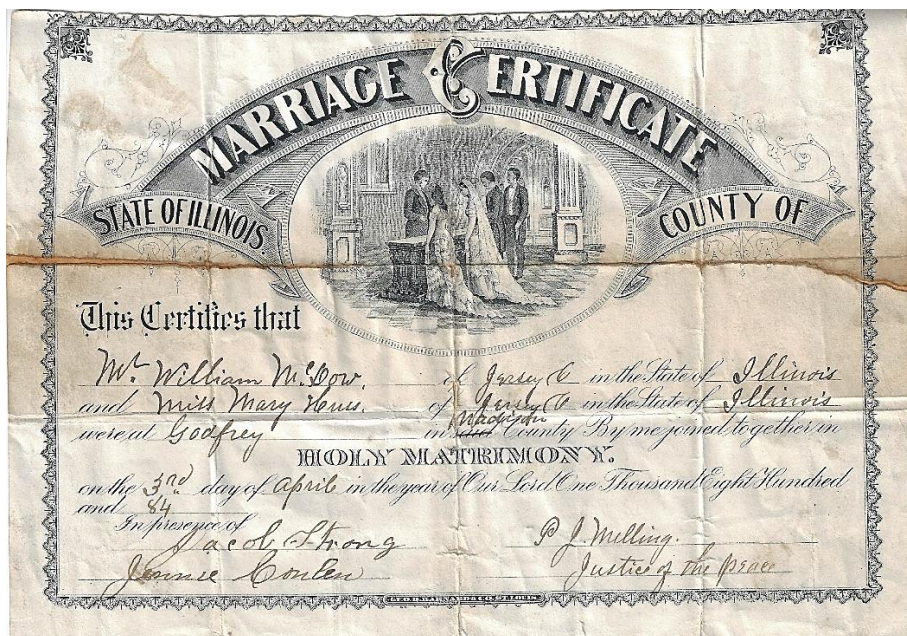 MARRIAGE CERTIFICATE
STATE OF ILLINOIS. COUNTY OF
This Certifies that
Mr. William McDow. of Jersey Co in the State of Illinois
and Miss Mary of Jersey Co in the State of Illinois
Madison
were at Godfrey in County By me joined together in
HOLY MATRIMONY.
on the 3rd day of April in the year of Our Lord One Thousand Eight Hundred
and 84
In presence of
Jacob Strong P J. Melling.
Jennie Justice of the Peace